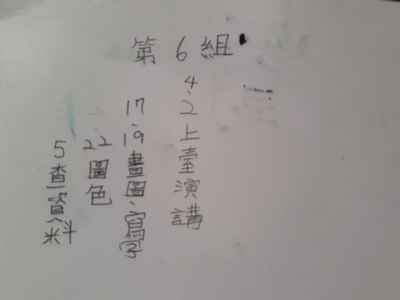 第6組
4.2上臺演講
17.19畫圖、寫字
22圖色
5查資料